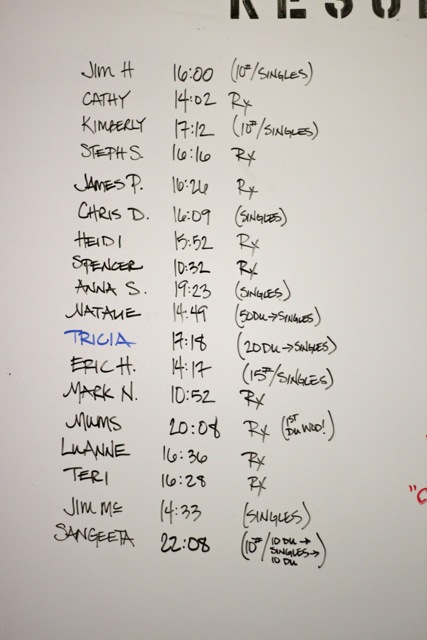 RESUL
JIM H 16:00 (10#/SINGLES)
CATHY 14:02 Rx
KIMBERLY 17:12 (10#/SINGLES)
STEPH S. 16:16 Rx
JAMES P. 16:26 Rx
CHRIS D. 16:09 (SINGLES)
HEIDI 15:52 Rx
SPENCER 10:32 Rx
ANNA S. 19:23 (SINGLES)
NATALIE 14:49 (50DU→SINGLES)
TRICIA 17:18 (20DU→SINGLES)
ERIC H. 14:17 (15#/SINGLES)
MARK N. 10:52 Rx
MUMS 20:08 Rx (1ST DU WOD!)
LUANNE 16:36 Rx
TERI 16:28 Rx
JIM Mc 14:33 (SINGLES)
SANGEETA 22:08 (10#/10 DU→
SINGLES→
10 DU)
"C